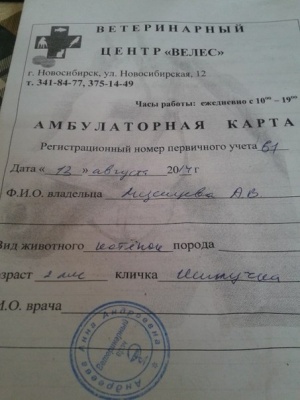 ВЕТЕРИНАРНЫЙ
ЦЕНТР «ВЕЛЕС»
г. Новосибирск, ул. Новосибирская, 12
т. 341-84-77, 375-14-49
Часы работы: ежедневно с 10⁰⁰ – 19⁰⁰
АМБУЛАТОРНАЯ КАРТА
Регистрационный номер первичного учета 61
Дата « 12 » август 2014г
Ф.И.О. владельца А.В.
Вид животного котёнок порода
возраст 2 мес кличка
И.О. врача
Андреева Анна Андреевна
Ветеринарный